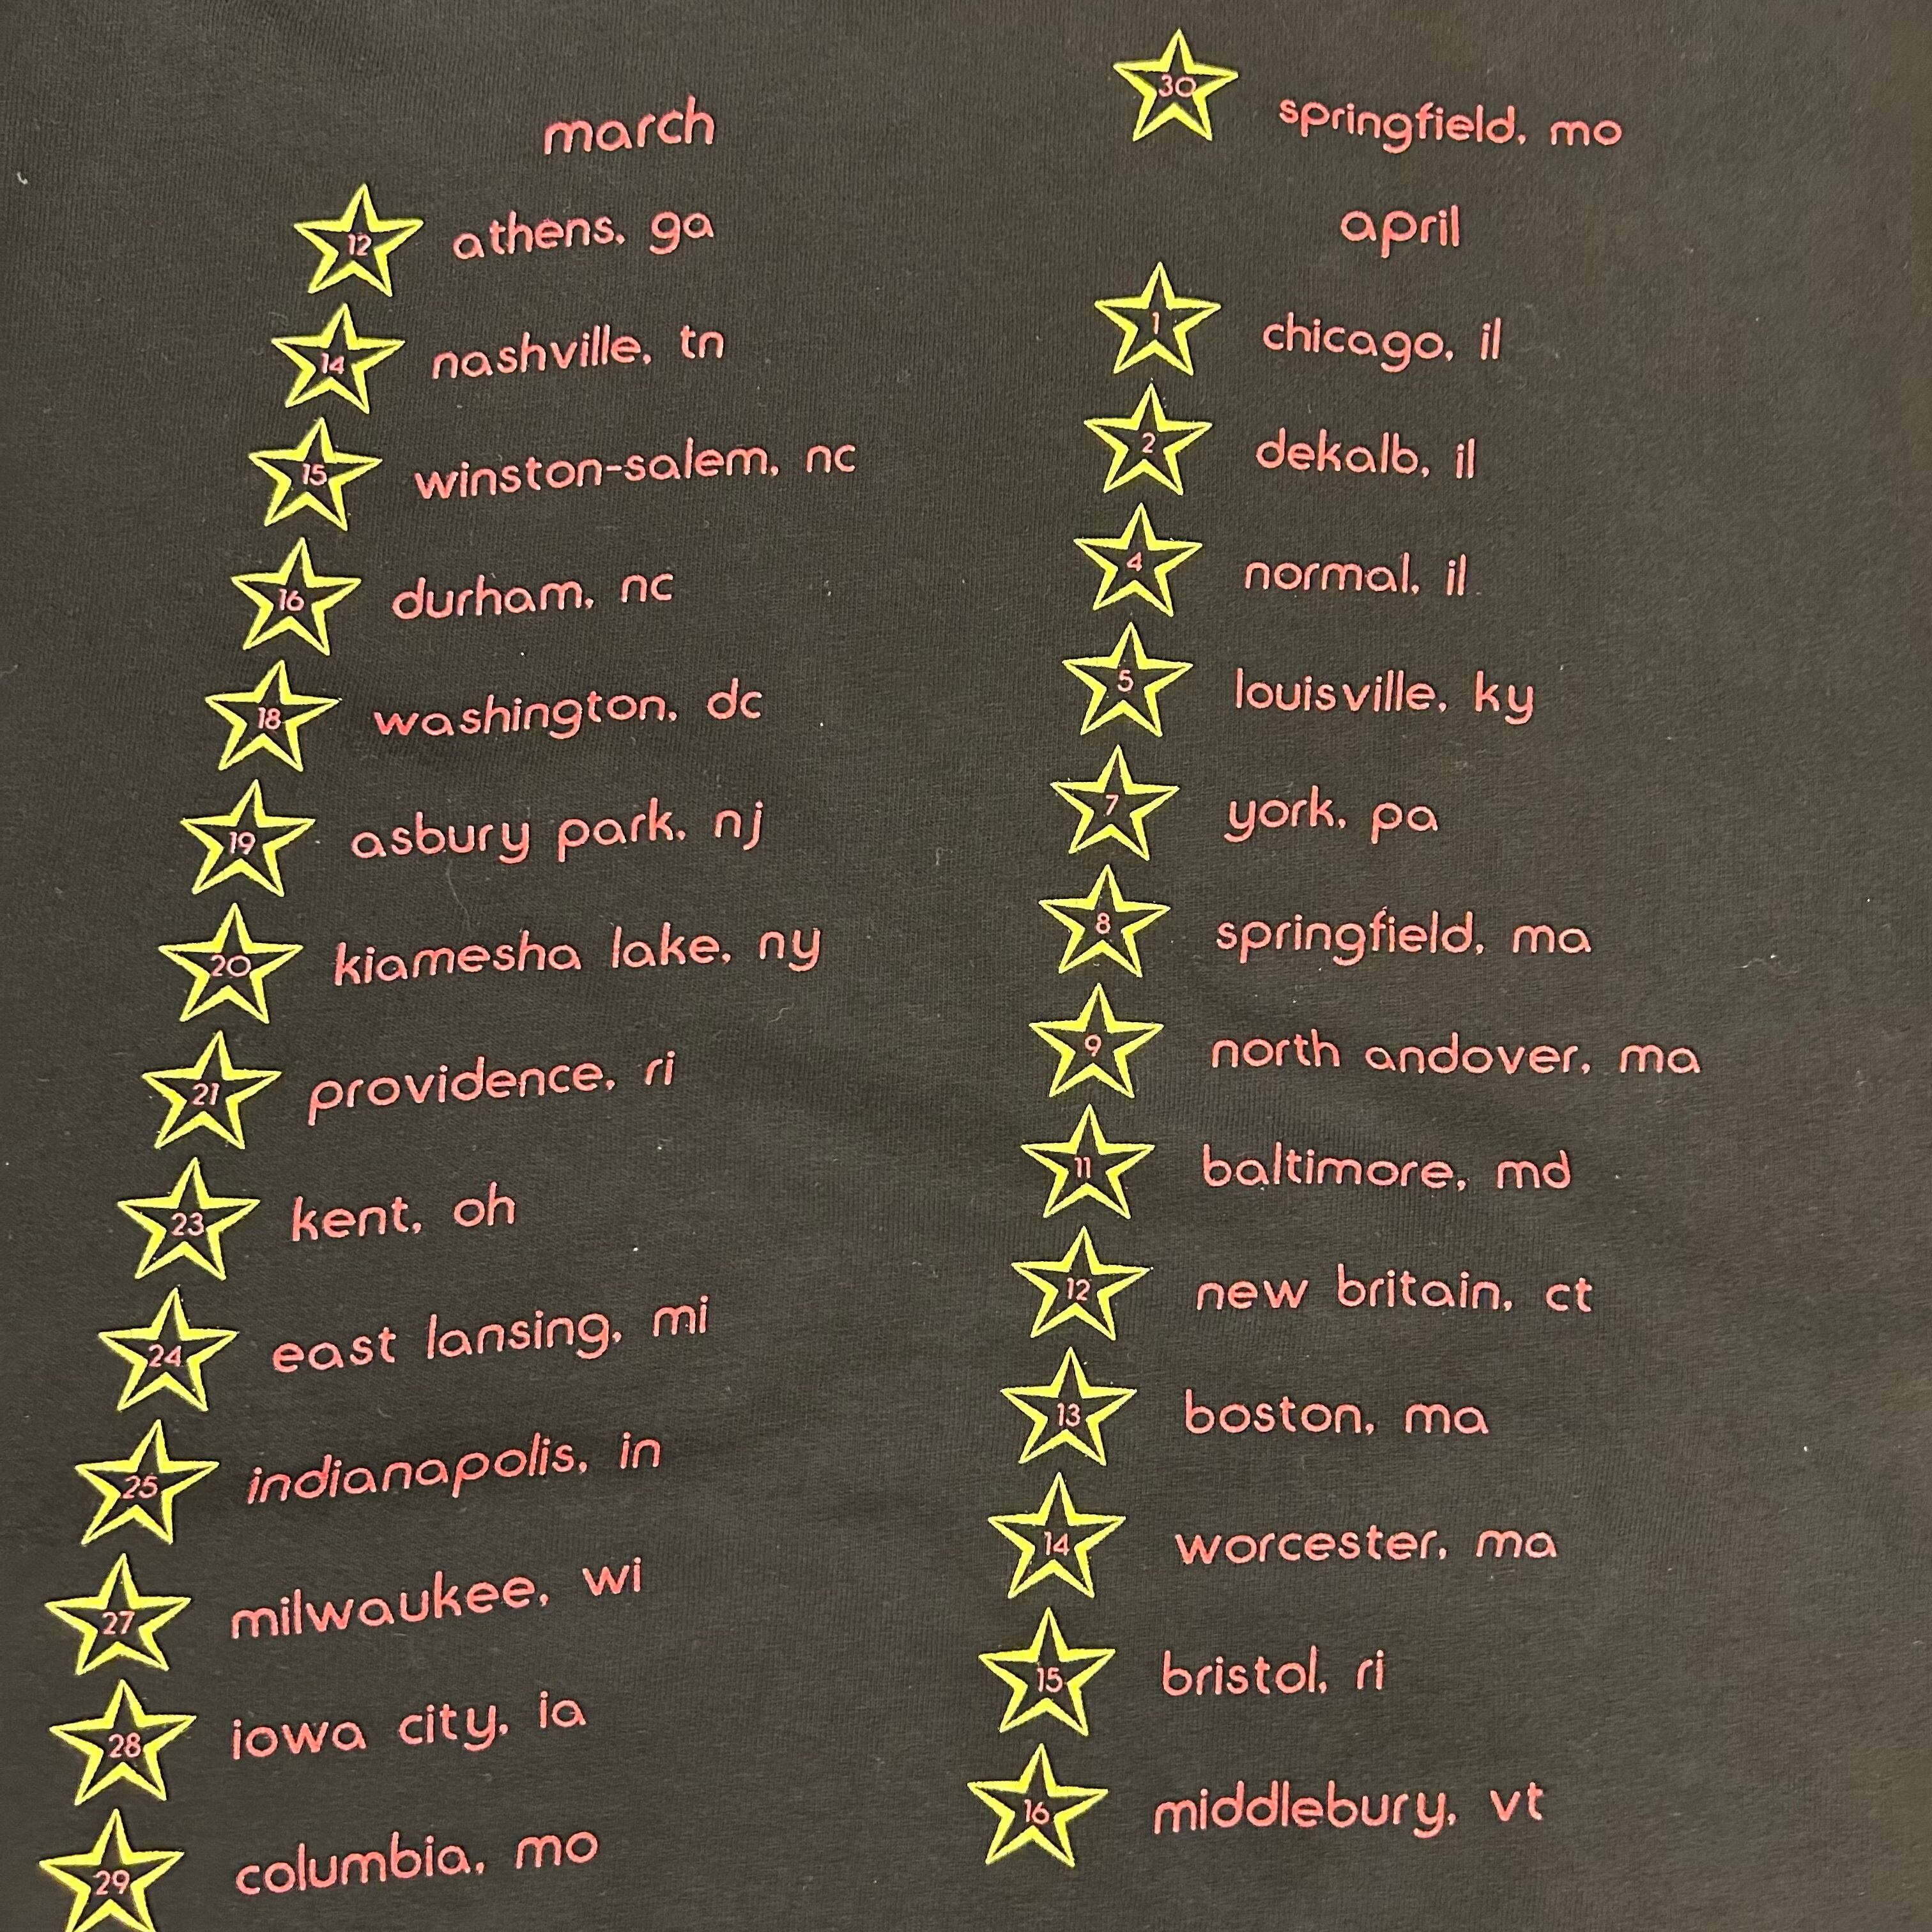 march
12 athens, ga
14 nashville, tn
15 winston-salem, nc
16 durham, nc
18 washington, dc
19 asbury park, nj
20 kiamesha lake, ny
21 providence, ri
23 kent, oh
24 east lansing, mi
25 indianapolis, in
27 milwaukee, wi
28 iowa city, ia
29 columbia, mo
30 springfield, mo
april
1 chicago, il
2 dekalb, il
4 normal, il
5 louisville, ky
7 york, pa
8 springfield, ma
9 north andover, ma
11 baltimore, md
12 new britain, ct
13 boston, ma
14 worcester, ma
15 bristol, ri
16 middlebury, vt